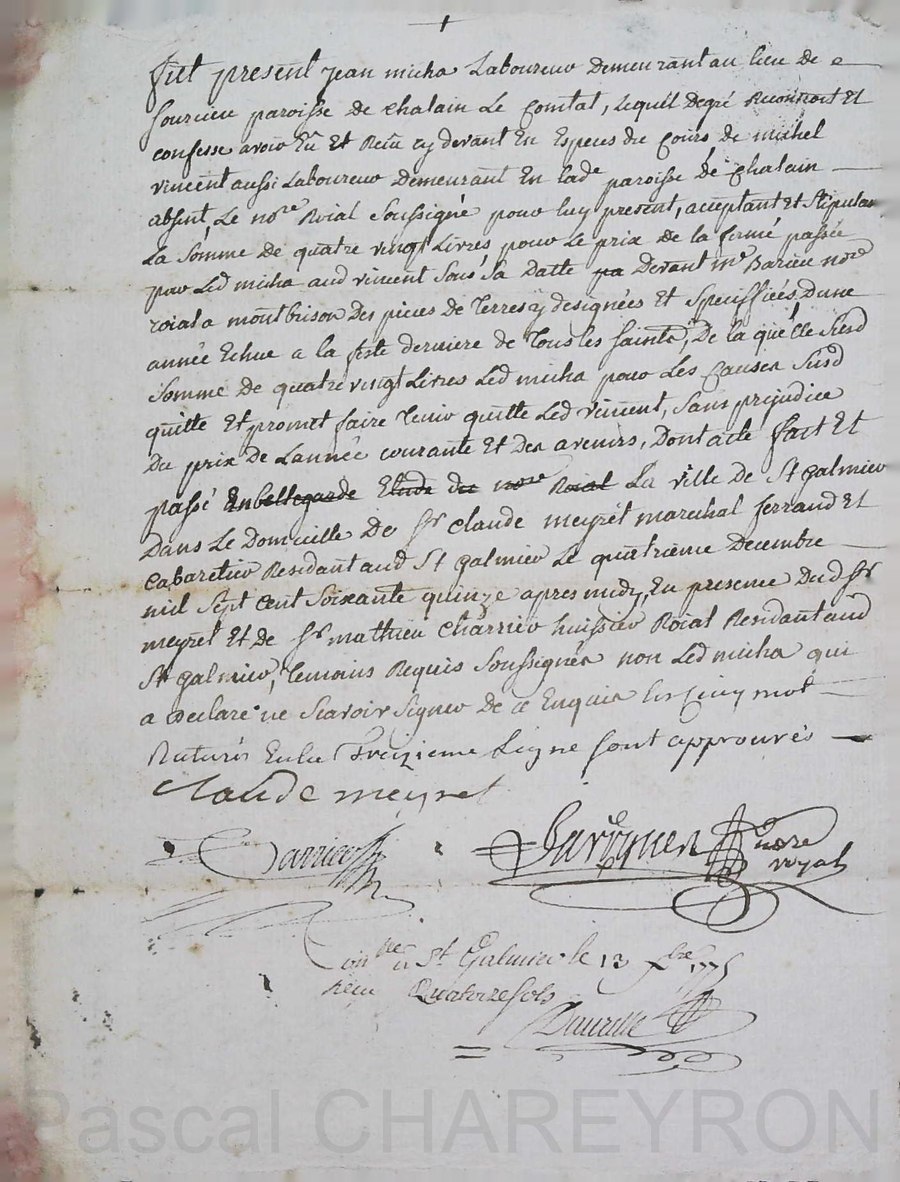 +
fut present jean micha Laboureur demeurant au lieu de
sourcieu paroisse de chalain Le Comtal, Lequel degré Reconnoit Et
confesse avoir Eû Et Reçu cy devant En Especes du Cours de michel
vincent aussi Laboureur demeurant En lade paroisse de chalain
absent, Le nore Roial Soussigné pour luy present, acceptant Et Stipulant
La somme de quatre vingt Livres pour Le prix de la ferme passée
par Led micha aud vincent sous sa datte pa devant me Barieu nore
roial a montbrison des pieces de Terres y designées Et speciffiées, dune
année Echue a la feste derniere de Tous les saints, De la quelle Susd
somme de quatre vingt Livres Led micha pour Les Causes Susd
quitte Et promet faire Tenir quitte Led vincent, Sans prejudice
Du prix de Lannée courante Et des avenirs, Dont acte fait Et
passé Enbellegarde Etude du nore Roial La ville de St galmier
Dans Le Domicille De sr Claude meyret marechal ferrand Et
Cabaretier Residant aud St galmier Le quatrieme decembre
mil sept cent soixante quinze apres midy, En presence Dud sr
meyret Et de sr mathieu Charrier huissier Roial Residant aud
St galmier, Temoins Requis Soussignés non Led micha qui
a declaré ne scavoir signer de ce Enquis les cinq mot
Raturés En la Treizieme Ligne sont approuvés
Claude meyret
Charrier
nore
royal
Conlé à St Galmier le 13 Xbre 1775
Reçu Quatorze sols